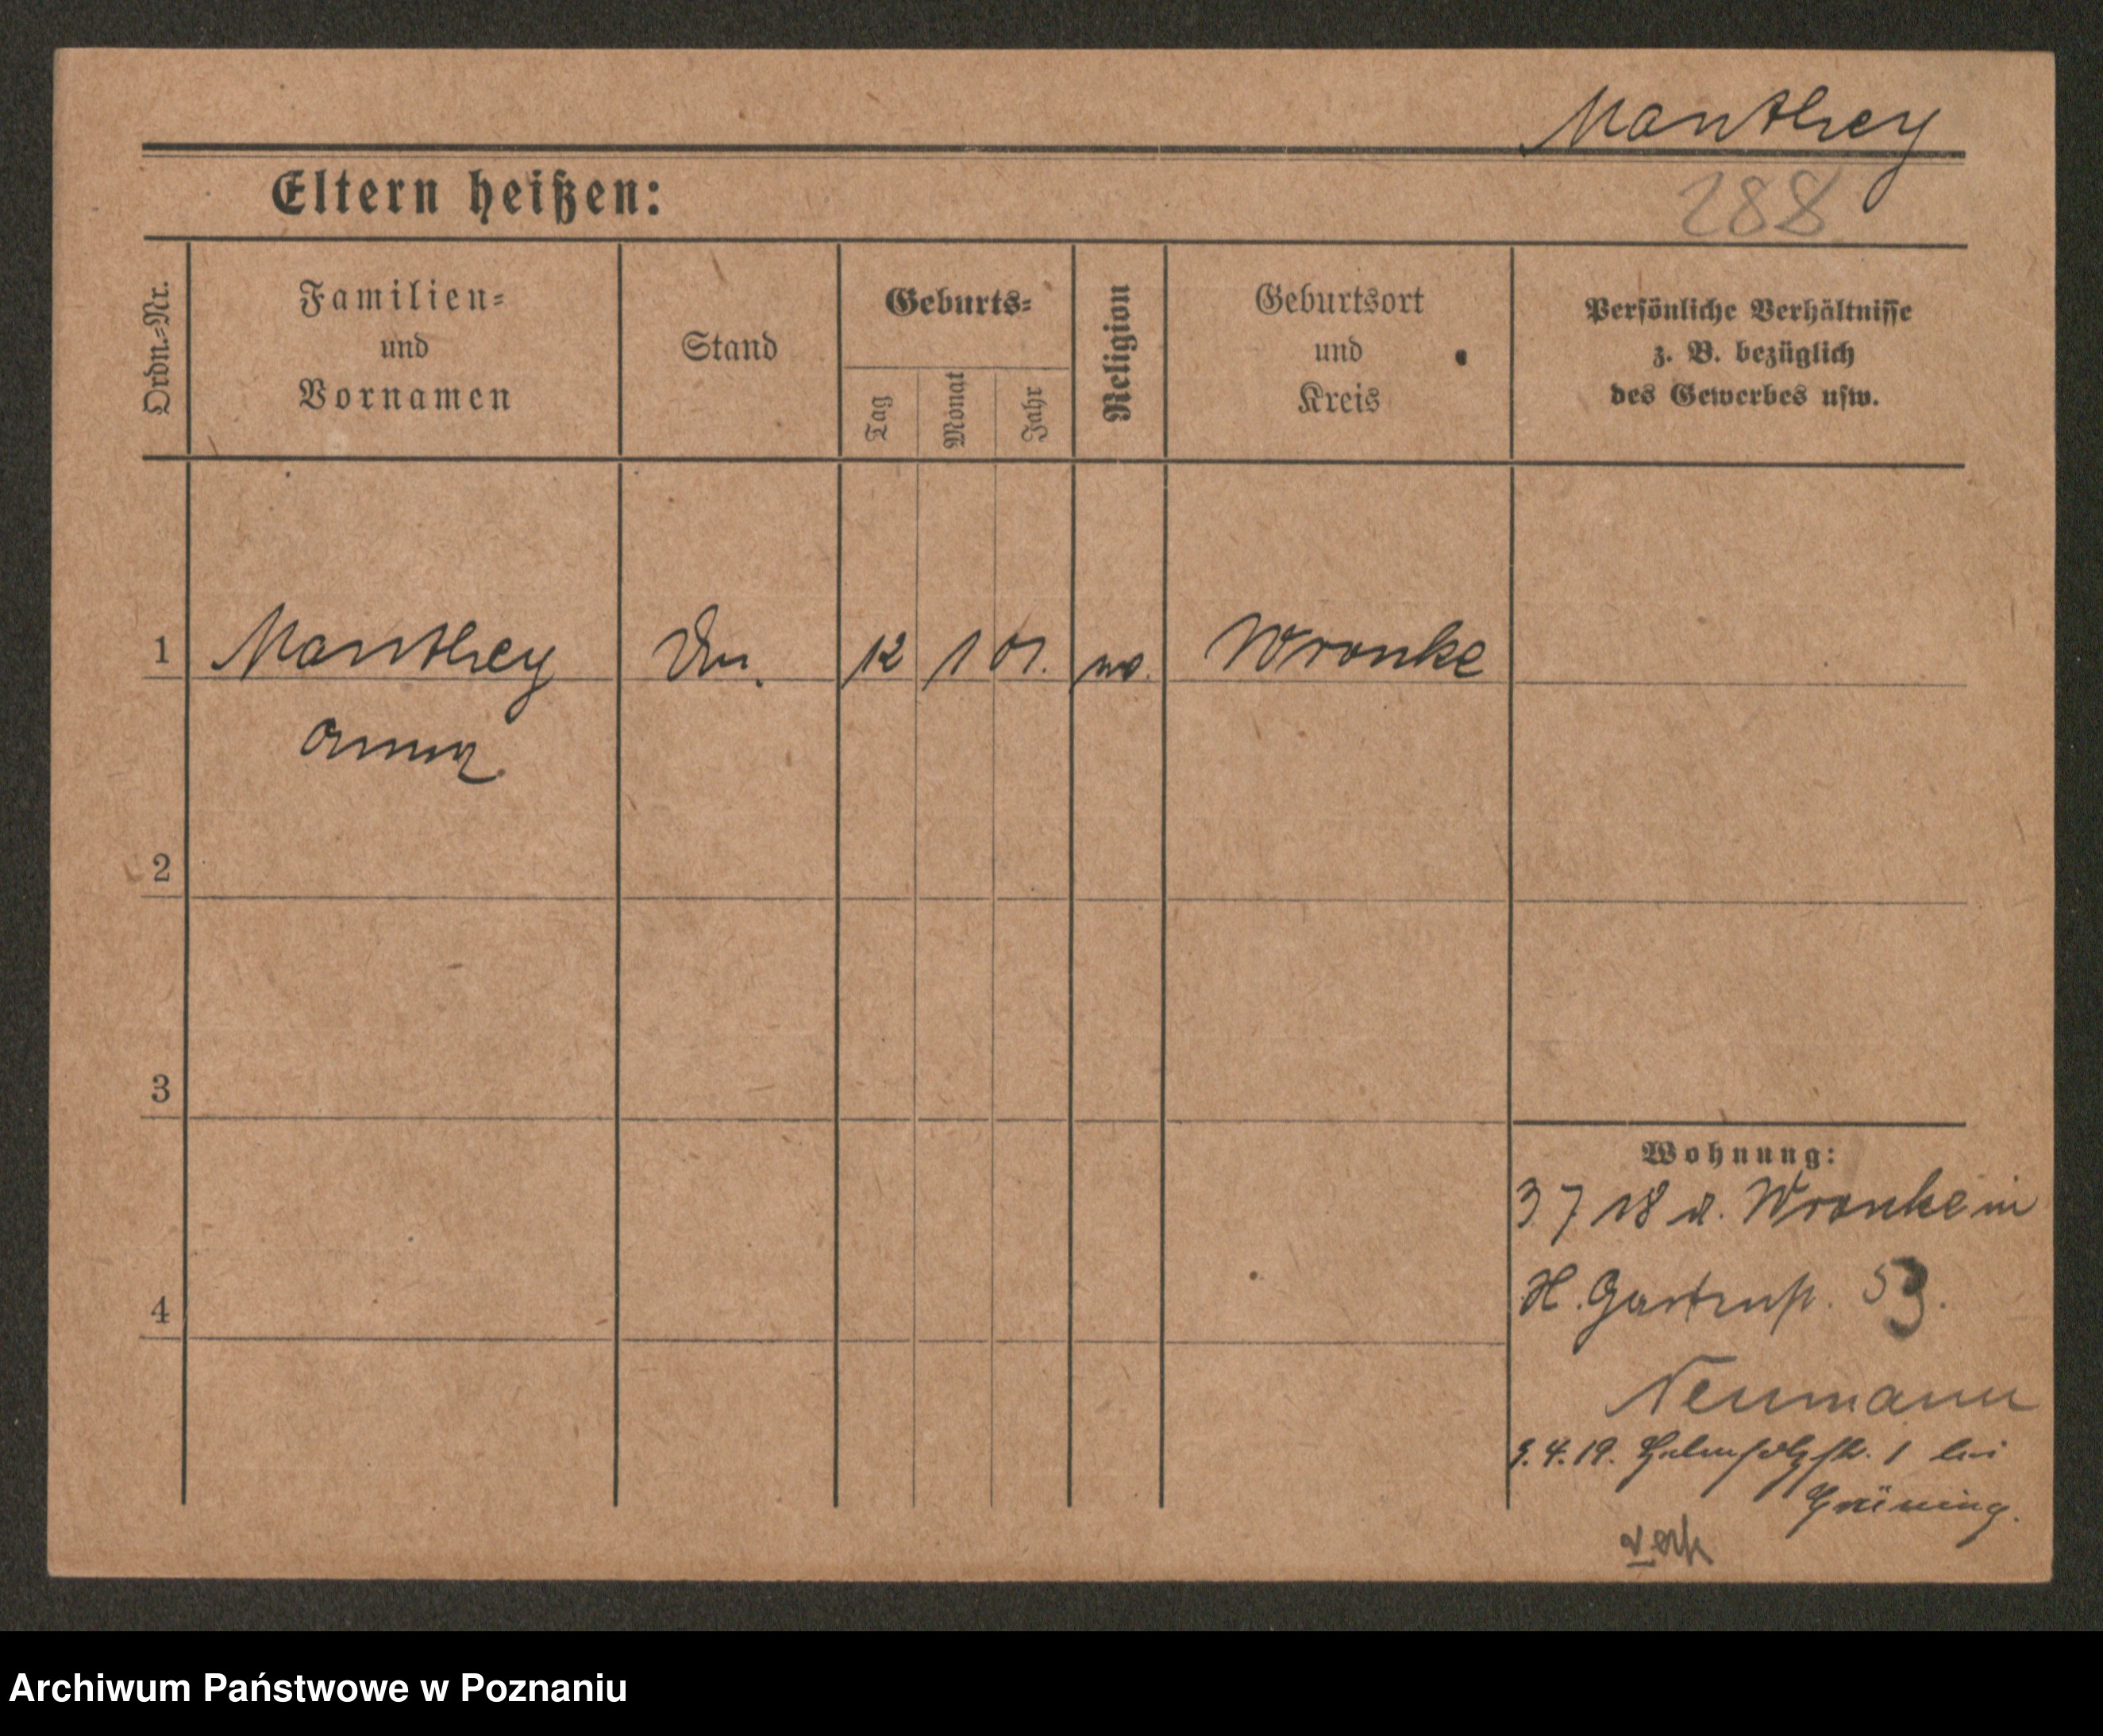 Manthey
288
Eltern heißen:
Ordn.-Nr.
Familien-
und
Vornamen
Stand
Geburts-
Tag
Monat
Jahr
Religion
Geburtsort
und
Kreis
Persönliche Verhältnisse
z. B. bezüglich
des Gewerbes usw.
1 Manthey 12 1 01. Wronke
Anna
2
3
4
Wohnung:
3 7 18 v. Wronke in
H. Gartenstr. 53.
Neumann
9.4.19. 1 bei
Grüning.
Archiwum Państwowe w Poznaniu